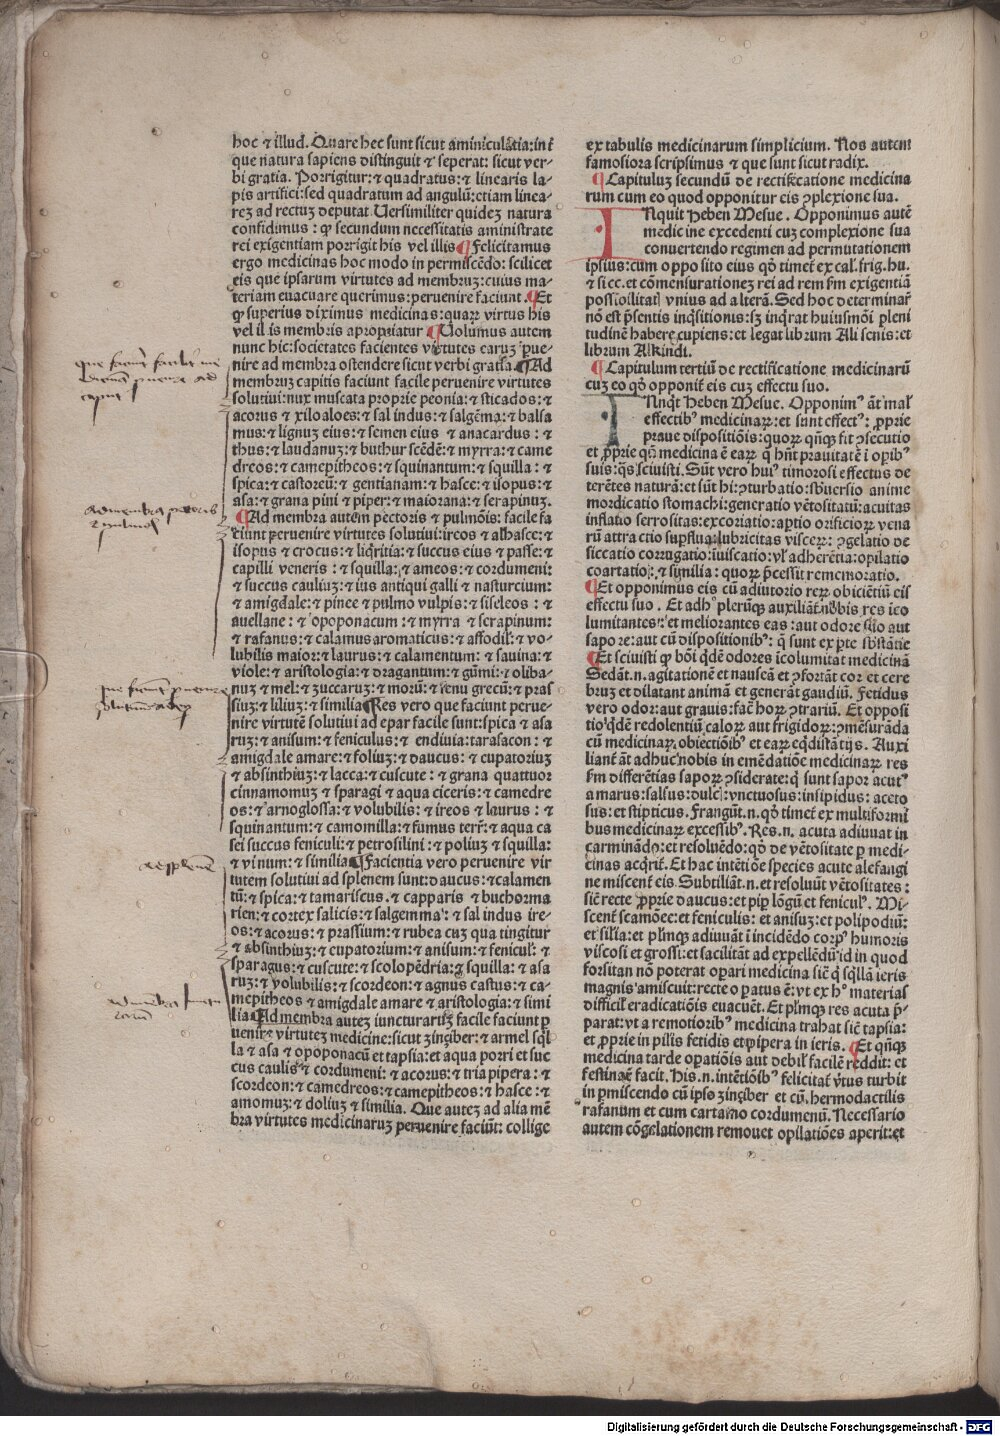 hoc ⁊ illud. Quare hec sunt sicut aminiculãtia: int̃
que natura sapiens distinguit ⁊ seperat: sicut ver-
bi gratia. Porrigitur: ⁊ quadratus: ⁊ linearis la-
pis artifici: sed quadratum ad angulũ: etiam linea-
reꝫ ad rectuꝫ deputat. Uersimiliter quideꝫ natura
confidimus: ꝙ secundum necessitatis aministrate
rei exigentiam porrigit his vel illis ¶ Felicitamus
ergo medicinas hoc modo in permiscẽdo: scilicet
eis que ipsarum virtutes ad membruꝫ: cuius ma-
teriam euacuare querimus: peruenire faciunt. ¶ Et
ꝙ superius diximus medicinas: quaꝝ virtus his
vel illis membris apropriatur ¶ Uolumus autem
nunc hic: societates facientes virtutes earuꝫ ꝑue-
nire ad membra ostendere sicut verbi gratia. ¶ Ad
membruꝫ capitis faciunt facile peruenire virtutes
solutiui: nux muscata proprie peonia: ⁊ sticados: ⁊
acorus ⁊ xiloaloes: ⁊ sal indus: ⁊ salgẽma: ⁊ balsa
mus: ⁊ lignuꝫ eius: ⁊ semen eius ⁊ anacardus: ⁊
thus: ⁊ laudanuꝫ: ⁊ buthur scẽdẽ: ⁊ myrra: ⁊ came
dreos: ⁊ camepitheos: ⁊ squinantum: ⁊ squilla: ⁊
spica: ⁊ castoreũ: ⁊ gentianam: ⁊ hasce: ⁊ isopus: ⁊
asa: ⁊ grana pini ⁊ piper: ⁊ maiorana: ⁊ serapinuꝫ.
¶ Ad membra autem pectoris ⁊ pulmõis: facile fa
ciunt peruenire virtutes solutiui: ireos ⁊ alhasce: ⁊
isopus ⁊ crocus: ⁊ liq̃ritia: ⁊ succus eius ⁊ passe: ⁊
capilli veneris: ⁊ squilla: ⁊ ameos: ⁊ cordumeni:
⁊ succus cauliuꝫ: ⁊ ius antiqui galli ⁊ nasturcium:
⁊ amigdale: ⁊ pince ⁊ pulmo vulpis: ⁊ siseleos: ⁊
auellane: ⁊ opoponacum: ⁊ myrra ⁊ serapinum:
⁊ rafanus: ⁊ calamus aromaticus: ⁊ affodil: ⁊ vo-
lubilis maior: ⁊ laurus: ⁊ calamentum: ⁊ sauina: ⁊
viole: ⁊ aristologia: ⁊ dragantum: ⁊ gũmi: ⁊ oliba-
nuꝫ ⁊ mel: ⁊ zuccaruꝫ: ⁊ morũ: ⁊ fenu grecũ: ⁊ pras
siuꝫ: ⁊ liliuꝫ: ⁊ similia ¶ Res vero que faciunt perue-
nire virtutẽ solutiui ad epar facile sunt: spica ⁊ asa
ruꝫ: ⁊ anisum: ⁊ feniculus: ⁊ endiuia: tarasacon: ⁊
amigdale amare: ⁊ foliuꝫ: ⁊ daucus: ⁊ eupatoriuꝫ
⁊ absinthiuꝫ: ⁊ lacca: ⁊ cuscute: ⁊ grana quattuor
cinnamomuꝫ ⁊ sparagi ⁊ aqua ciceris: ⁊ camedre
os: ⁊ arnoglossa: ⁊ volubilis: ⁊ ireos ⁊ laurus: ⁊
squinantum: ⁊ camomilla: ⁊ fumus terr̃: ⁊ aqua ca
sei succus feniculi: ⁊ petrosilini: ⁊ poliuꝫ ⁊ squilla:
⁊ vinum: ⁊ similia ¶ Facientia vero peruenire vir
tutem solutiui ad splenem sunt: daucus: ⁊ calamen
tũ: ⁊ spica: ⁊ tamariscus. ⁊ capparis ⁊ buchorma
rien: ⁊ cortex salicis: ⁊ salgemma: ⁊ sal indus ire-
os: ⁊ acorus: ⁊ prassium: ⁊ rubea cuꝫ qua tingitur
⁊ absinthiuꝫ: ⁊ eupatorium: ⁊ anisum: ⁊ fenicul: ⁊
sparagus: ⁊ cuscute: ⁊ scolopẽdria: ⁊ squilla: ⁊ asa
ruꝫ: ⁊ volubilis: ⁊ scordeon: ⁊ agnus castus: ⁊ ca-
mepitheos ⁊ amigdale amare ⁊ aristologia: ⁊ simi
lia ¶ Ad membra auteꝫ iuncturarũ facile faciunt ꝑ
uenire virtuteꝫ medicine: sicut zinꝫiber: ⁊ armel sq̃l
la ⁊ asa ⁊ opoponacũ et tapsia: et aqua porri et suc
cus caulis ⁊ cordumeni: ⁊ acorus: ⁊ tria pipera: ⁊
scordeon: ⁊ camedreos: ⁊ camepitheos ⁊ hasce: ⁊
amomuꝫ: ⁊ doliuꝫ ⁊ similia. Que auteꝫ ad alia mẽ
bra virtutes medicinaruꝫ peruenire faciũt: collige
ex tabulis medicinarum simplicium. Nos autem
famosiora scripsimus ⁊ que sunt sicut radix.
¶ Capituluꝫ secundũ de rectificatione medicina
rum cum eo quod opponitur eis ↄplexione sua.
INquit Heben Mesue. Opponimus autẽ
medicine excedenti cuꝫ complexione sua
conuertendo regimen ad permutationem
ipsius: cum opposito eius qꝺ timet̃ ex cal. frig. hu.
⁊ sicc. et cõmensurationeꝫ rei ad rem ẜm exigentiã
possibilitatĩ vnius ad alterã. Sed hoc determinar̃
nõ est p̃sentis inq̃sitionis: sꝫ inq̃rat huiusmõi pleni
tudinẽ habere cupiens: et legat librum Ali senis: et
librum Alkindi.
¶ Capitulum tertiũ de rectificatione medicinarũ
cuꝫ eo qꝺ opponit̃ eis cuꝫ effectu suo.
INnq̃t Heben Mesue. Opponimꝰ ãt mal
effectibꝰ medicinaꝝ: et sunt effectꝰ: ꝓprie
praue dispositiõis: quoꝝ qñqꝫ fit ↄsecutio
et ꝓprie qñ medicina ẽ eaꝝ q̃ hñt prauitatẽ i opibꝰ
suis: q̃s sciuisti. Sũt vero huiꝰ timorosi effectus de
terẽtes naturã: et sũt hi: ↄturbatio: sbꝰuersio anime
mordicatio stomachi: generatio vẽtositatũ: acuitas
inflatio serrositas: excoriatio: aꝑtio orificioꝝ vena
rũ attractio suꝑflua: lubricitas visceꝝ: ↄgelatio de
siccatio corrugatio: iuiscatio: vl adherẽtia: opilatio
coartatio: ⁊ similia: quoꝝ p̃cessit rememoratio.
¶ Et opponimus eis cũ adiutorio reꝝ obiciẽtiũ eis
effectu suo. Et adhꝰ plerũqꝫ auxiliãt̃ nobis res ico
lumitantes: et meliorantes eas: aut odore suo aut
sapore: aut cũ dispositionibꝰ: q̃ sunt ex ꝑte sb̃stãtie
¶ Et sciuisti ꝙ bõi q̃dẽ odores ĩcolumitat̃ medicinã
Sedãt.n. agitationẽ et nauseã et ↄfortãt cor et cere
bruꝫ et dilatant animã et generãt gaudiũ. Fetidus
vero odor: aut grauis: facĩt hoꝝ ↄtrariũ. Et opposi
tio q̃dẽ redolentiũ caloꝝ aut frigidoꝝ: ↄmẽsurãda
cũ medicinaꝝ obiectiõibꝰ et eaꝝ eq̃distãtijs. Auxi
liant̃ ãt adhuc nobis in emẽdatiõe medicinaꝝ res
ẜm differẽtias sapoꝝ ↄsiderate: q̃ sunt sapor acutꝰ
amarus: salsus: dulcĩ: vnctuosus: insipidus: aceto
sus: et stipticus. Frangũt.n. qꝺ timet̃ ex multiformi
bus medicinaꝝ excessibꝰ. Res.n. acuta adiuuat in
carminãdo: et resoluẽdo: qꝺ de vẽtositate ꝑ medi-
cinas acq̃rit̃. Et hac intẽtiõe species acute alefangi
ne miscent̃ eis. Subtiliãt.n. et resoluũt vẽtositates:
sic̃ recte ꝓprie daucus: et pip lõgũ et feniculꝰ. Mi-
scent̃ scamõee: et feniculis: et anisuꝫ: et polipodiũ:
et silia: et plimqꝫ adiuuãt ĩ incidẽdo corpꝰ humoris
viscosi et grossi: et facilitãt ad expellẽdũ id in quod
forsitan nõ poterat opari medicina sic̃ q̃ sq̃llã ieris
magnis amiscuit: recte o patus ẽ: vt ex hꝰ materias
difficil eradicatiõis euacuẽt. Et plimqꝫ res acuta p̃-
parat: vt a remotioribꝰ medicina trahat sic̃ tapsia:
et ꝓprie in pilis fetidis et pipera in ieris. ¶ Et qñqꝫ
medicina tarde opatiõis aut debil facilẽ reddit: et
festinãẽ facit. His.n. intẽtiõibꝰ felicitat̃ v̾tus turbit
in ꝑmiscendo cũ ipso zinꝫiber et cũ. hermodactilis
rafanum et cum cartamo cordumenũ. Necessario
autem cõgelationem remouet opilatiões aperit: et
ad caput
ad membra pectoris
ad splenẽ
Digitalisierung gefördert durch die Deutsche Forschungsgemeinschaft - DFG